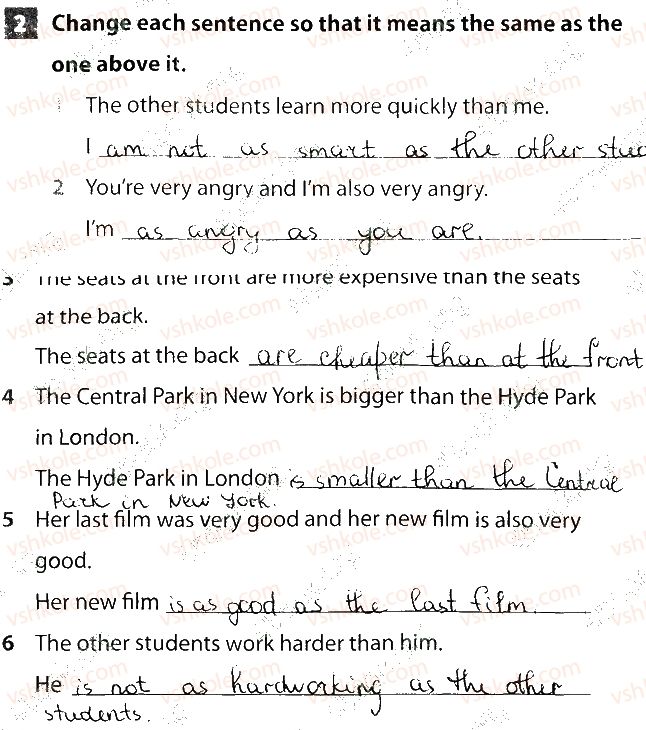 2 Change each sentence so that it means the same as the
one above it.
1 The other students learn more quickly than me.
I am not as smart as the other stud
2 You're very angry and I'm also very angry.
I'm as angry as you are.
3 The seats at the front are more expensive than the seats
at the back.
The seats at the back are cheaper than at the front
4 The Central Park in New York is bigger than the Hyde Park
in London.
The Hyde Park in London is smaller than the Central
Park in New York.
5 Her last film was very good and her new film is also very
good.
Her new film is as good as the last film.
6 The other students work harder than him.
He is not as hardworking as the other
students.